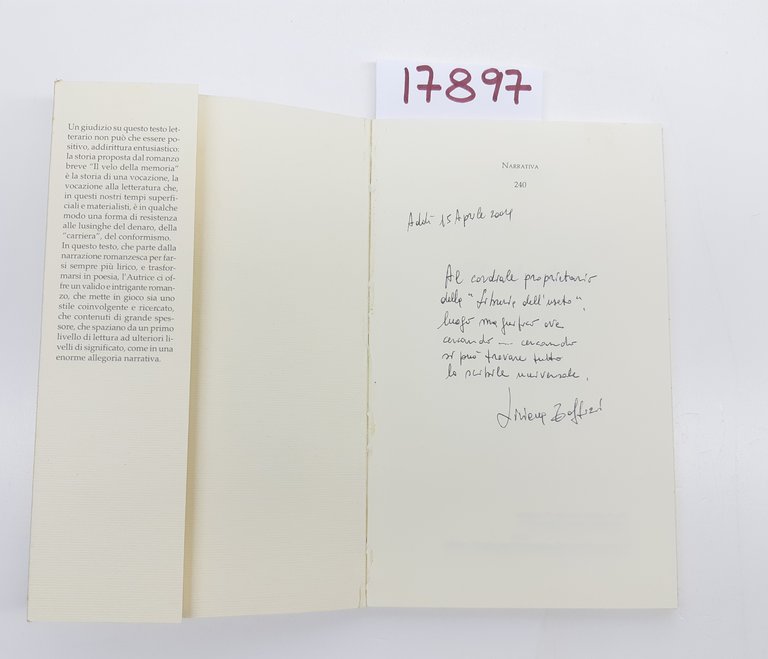 17897
Un giudizio su questo testo let-
terario non può che essere po-
sitivo, addirittura entusiastico:
la storia proposta dal romanzo
breve "Il velo della memoria"
è la storia di una vocazione, la
vocazione alla letteratura che,
in questi nostri tempi superfi-
ciali e materialisti, è in qualche
modo una forma di resistenza
alle lusinghe del denaro, della
"carriera", del conformismo.
In questo testo, che parte dalla
narrazione romanzesca per far-
si sempre più lirico, e trasfor-
marsi in poesia, l'Autrice ci of-
fre un valido e intrigante roman-
zo, che mette in gioco sia uno
stile coinvolgente e ricercato,
che contenuti di grande spes-
sore, che spaziano da un primo
livello di lettura ad ulteriori li-
velli di significato, come in una
enorme allegoria narrativa.
Narrativa
240
Addì 15 Aprile 2004
Al cordiale proprietario
della "Libreria dell'usato",
luogo magnifico ove
cercando .... cercando
si può trovare tutto
lo scibile universale.